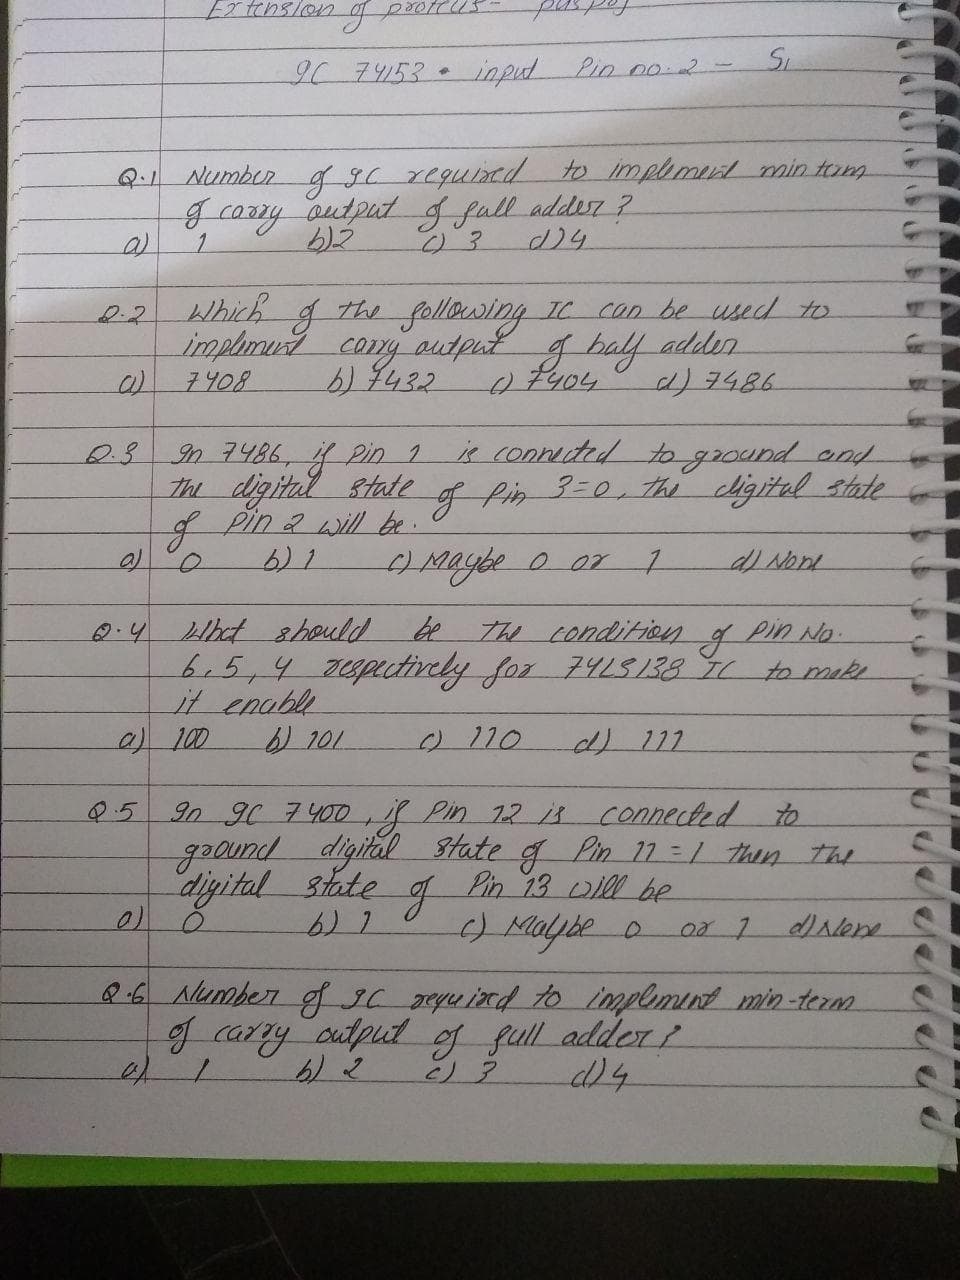 Extension of proteus -
IC 74153 • input Pin no. 2 - S1
Q.1 Number of IC required to implement min term
of carry output of full adder?
a) 1 b) 2 c) 3 d) 4
Q.2 Which of the following IC can be used to
implement carry output of half adder
a) 7408 b) 7432 c) 7404 d) 7486
Q.3 In 7486, if Pin 1 is connected to ground and
the digital state of Pin 3=0, the digital state
of Pin 2 will be.
a) 0 b) 1 c) Maybe 0 or 1 d) None
Q.4 What should be the condition of Pin No.
6, 5, 4 respectively for 74LS138 IC to make
it enable
a) 100 b) 101 c) 110 d) 111
Q.5 In IC 7400, if Pin 12 is connected to
ground digital state of Pin 11 = 1 then the
digital state of Pin 13 will be
a) 0 b) 1 c) Maybe 0 or 1 d) None
Q.6 Number of IC required to implement min-term
of carry output of full adder?
a) 1 b) 2 c) 3 d) 4